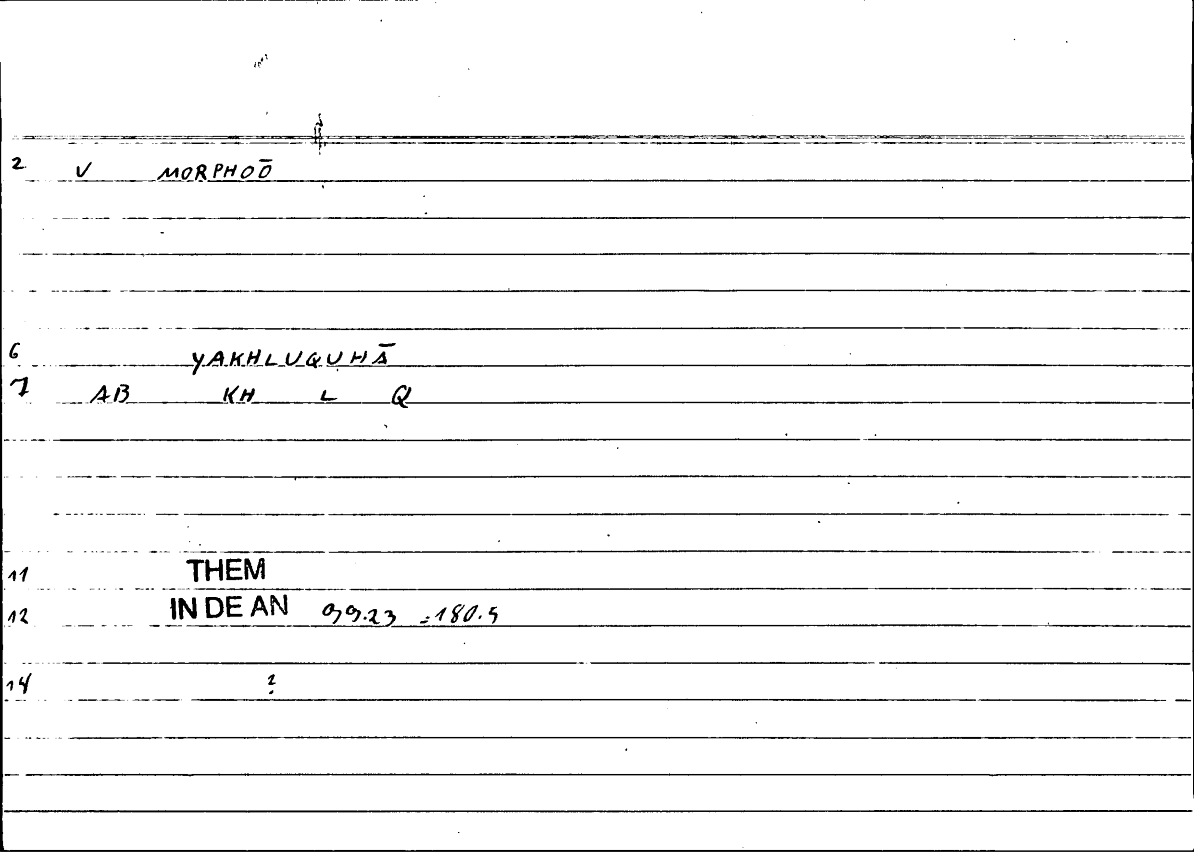 2 V MORPHOŌ
6 YAKHLUQUHĀ
7 AB KH L Q
11 THEM
12 IN DE AN 99.23 =180.5
14 ?